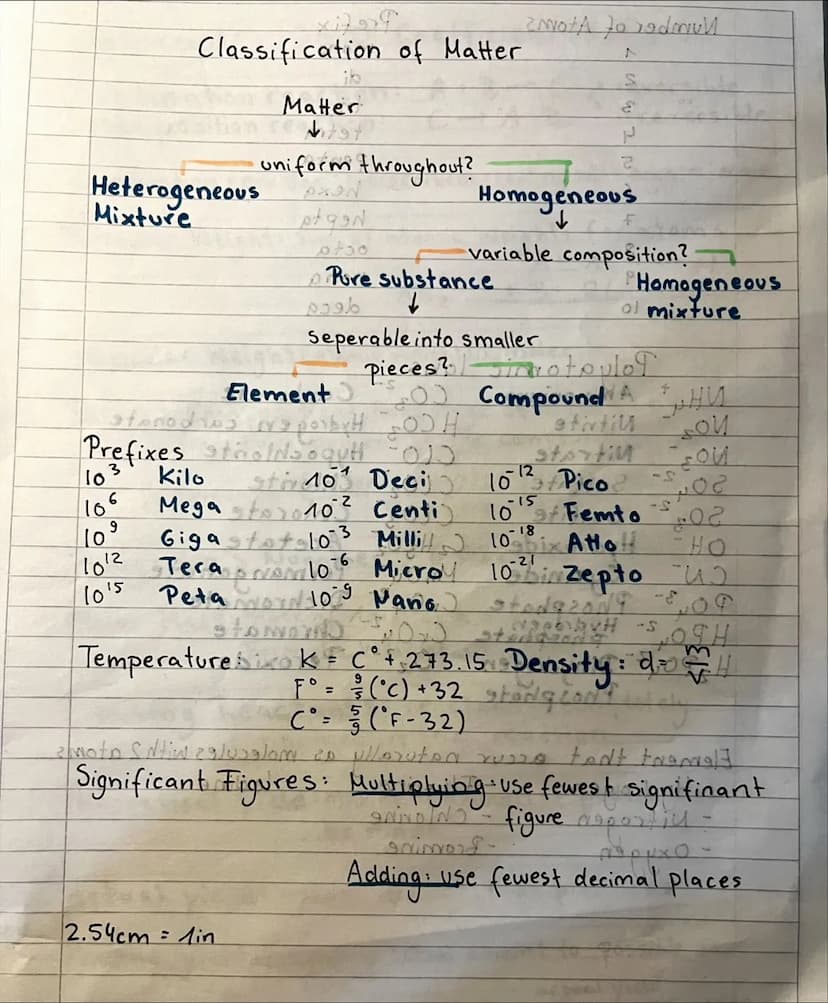 Classification of Matter
Matter
↓
uniform throughout?
Heterogeneous Homogeneous
Mixture ↓
variable composition?
Pure substance Homogeneous
↓ mixture
seperable into smaller
pieces?
Element Compound
Prefixes
10³ Kilo 10⁻¹ Deci 10⁻¹² Pico
10⁶ Mega 10⁻² Centi 10⁻¹⁵ Femto
10⁹ Giga 10⁻³ Milli 10⁻¹⁸ Atto
10¹² Tera 10⁻⁶ Micro 10⁻²¹ Zepto
10¹⁵ Peta 10⁻⁹ Nano
Temperature: K = C° + 273.15 Density: d = m/V
F° = 9/5 (°C) + 32
C° = 5/9 (°F - 32)
Significant Figures: Multiplying: use fewest signifinant
figure
Adding: use fewest decimal places
2.54cm = 1in